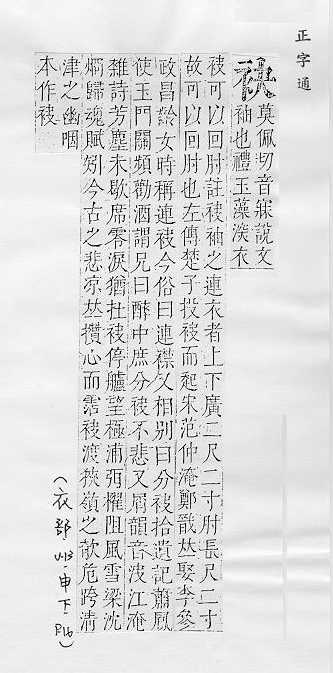 正字通
袂
莫佩切音寐說文
袖也禮玉藻深衣
袂可以回肘註袂袖之連衣者上下廣二尺二寸肘長尺二寸
故可以回肘也左傳楚子投袂而起宋范仲淹鄭戩𠀤娶李參
政昌齡女時稱連袂今俗曰連襟又相別曰分袂拾遺記蕭
使玉門關頻勸酒謂兄曰醉中庶分袂不悲又屑韻音決江淹
雜詩芳塵未歇席零淚猶在袂停艫望極浦弭櫂阻風雪梁沈
烱歸魂賦矧今古之悲凉𠀤攢心而霑袂渡狹嶺之欹危跨清
津之幽咽
本作
(衣部·申下·P16)